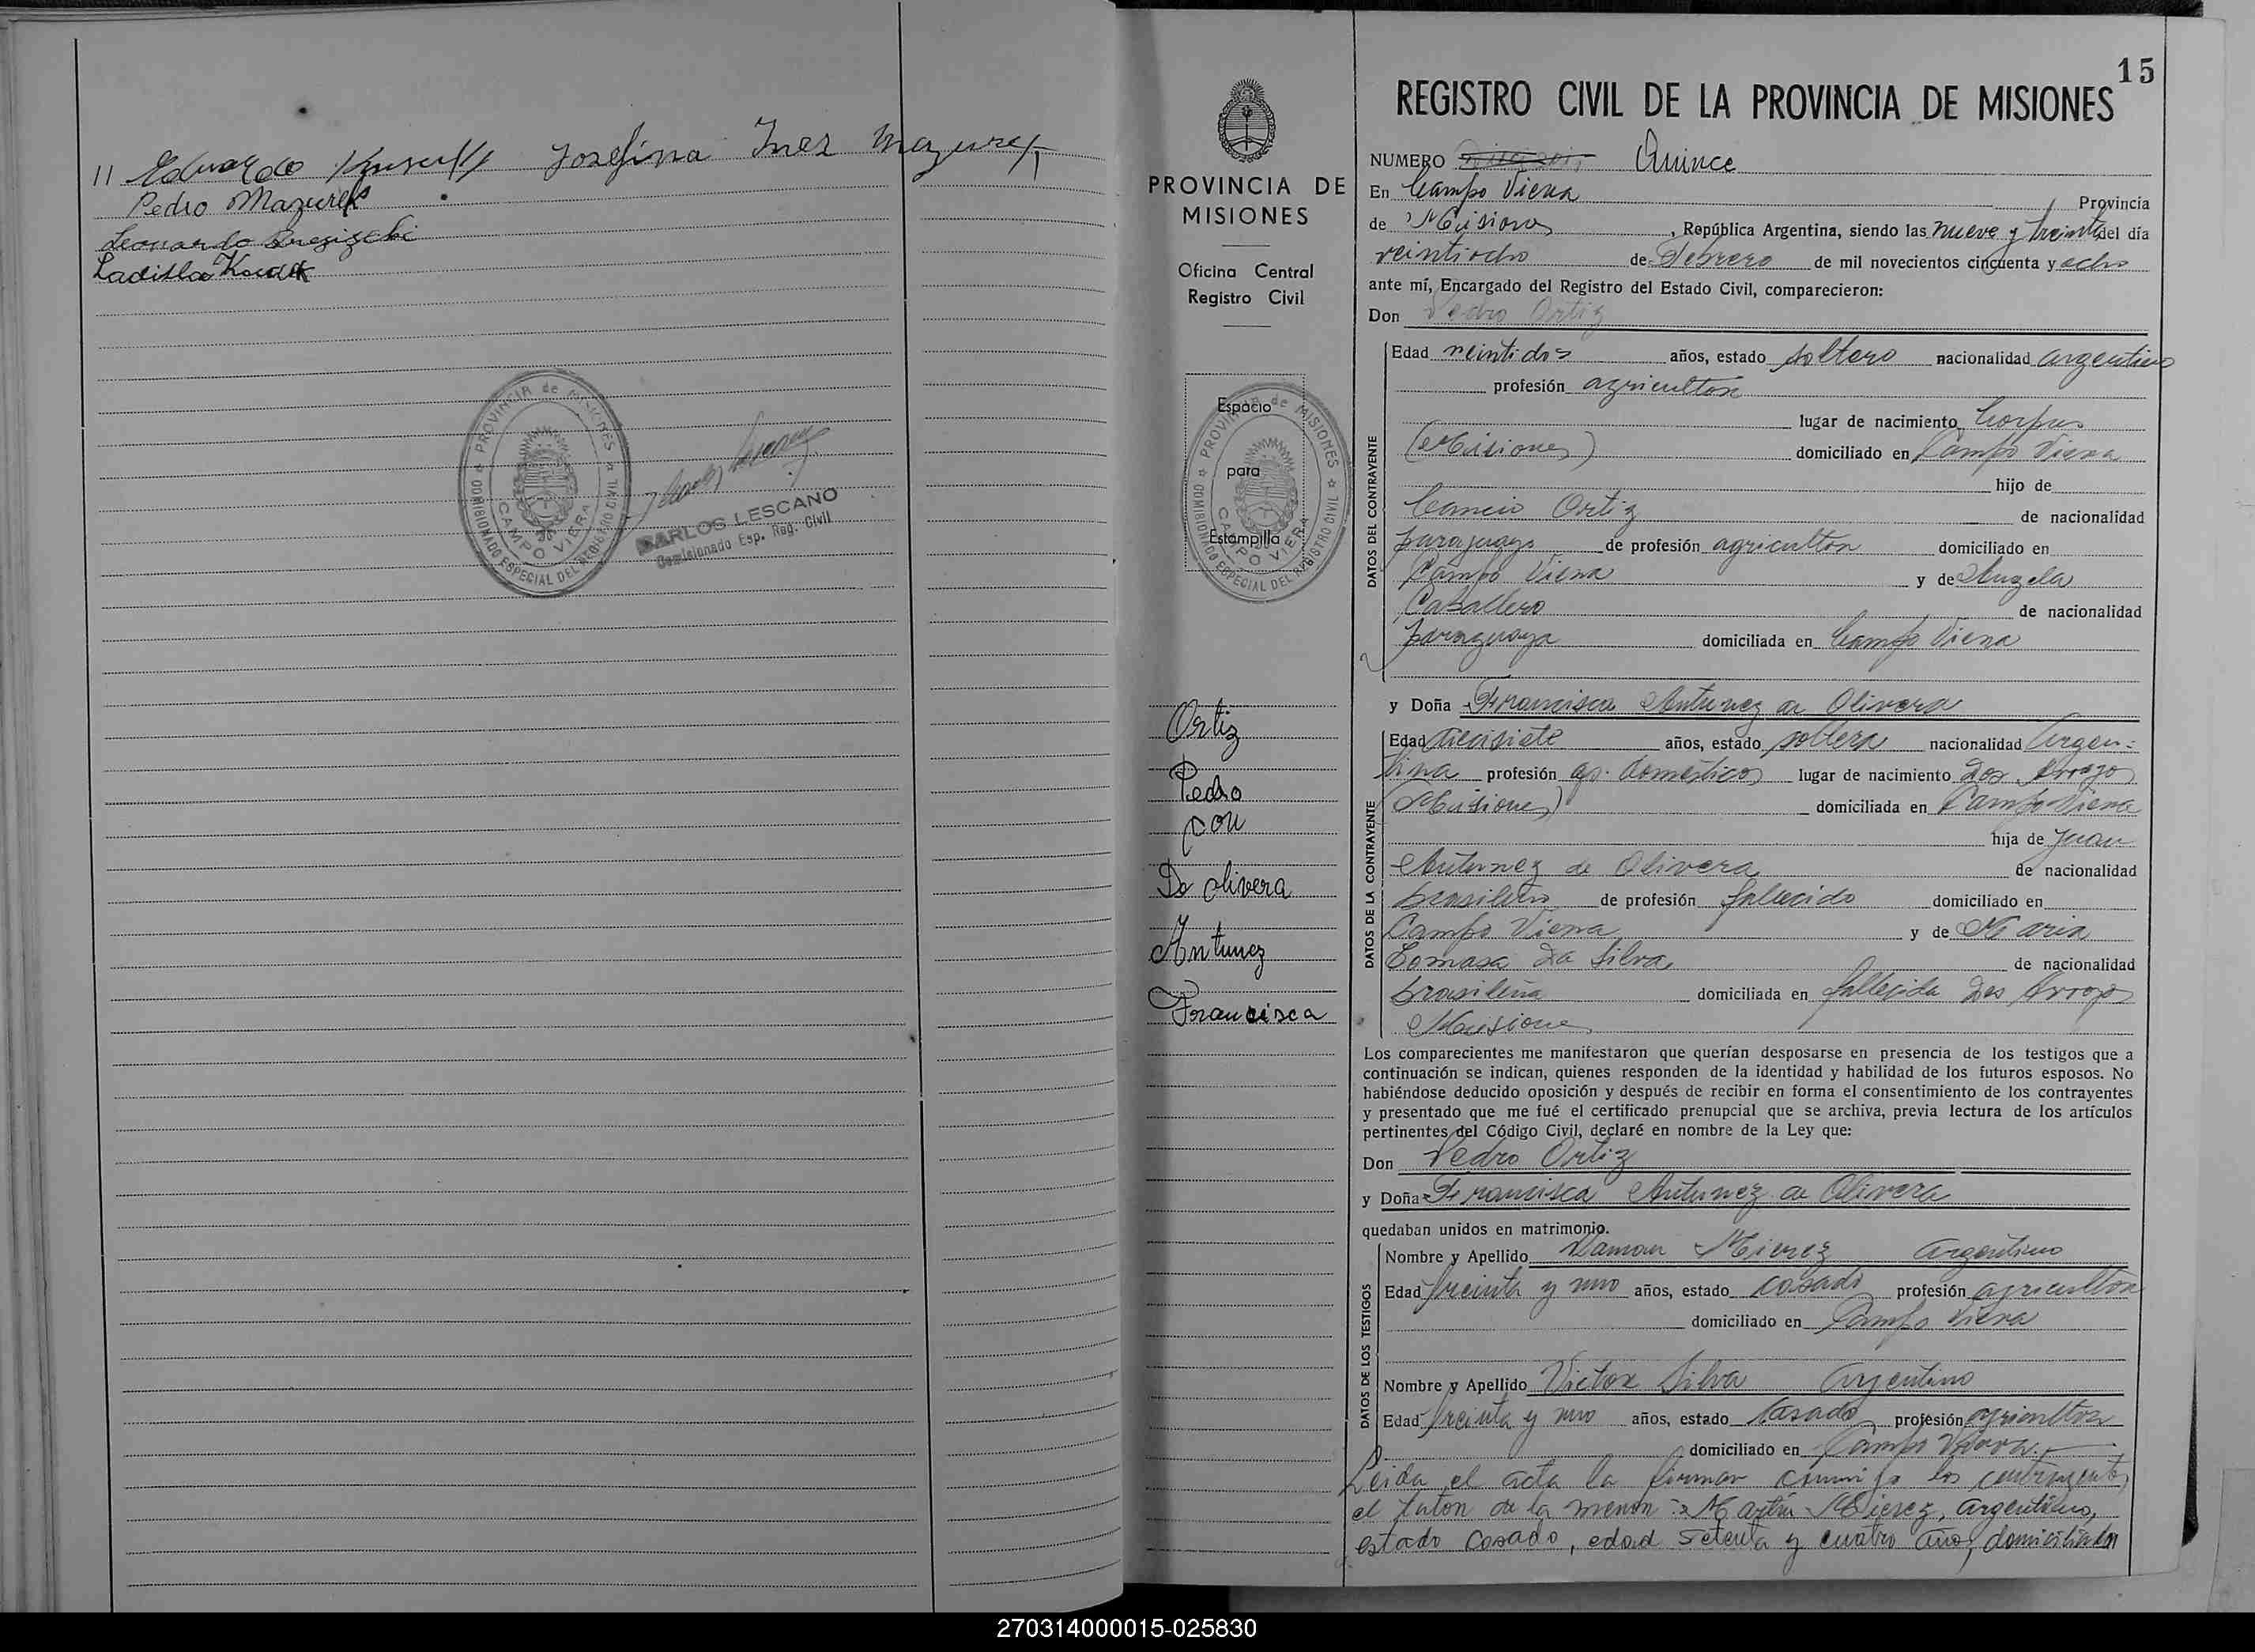 11 Eduardo Josefina Inez Mazurek
Pedro Mazurek
Leonardo
Ladisla
PROVINCIA de MISIONES
COMISIONADO ESPECIAL DEL REGISTRO CIVIL
CAMPO VIERA
CARLOS LESCANO
Comisionado Esp. Reg. Civil
PROVINCIA DE
MISIONES
Oficina Central
Registro Civil
Espacio
para
Estampilla
PROVINCIA de MISIONES
COMISIONADO ESPECIAL DEL REGISTRO CIVIL
CAMPO VIERA
Ortiz
Pedro
con
De olivera
Antunez
Francisca
15
REGISTRO CIVIL DE LA PROVINCIA DE MISIONES
NUMERO Quince
En Campo Viera Provincia
de Misiones, República Argentina, siendo las nueve y treinta del día
veintiocho de Febrero de mil novecientos cincuenta y ocho
ante mí, Encargado del Registro del Estado Civil, comparecieron:
Don Pedro Ortiz
DATOS DEL CONTRAYENTE
Edad veintidos años, estado soltero nacionalidad argentino
profesión agricultor
lugar de nacimiento Corpus
(Misiones) domiciliado en Campo Viera
hijo de
Cancio Ortiz de nacionalidad
paraguayo de profesión agricultor domiciliado en
Campo Viera y de Angela
Caballero de nacionalidad
paraguaya domiciliada en Campo Viera
y Doña Francisca Antunez de Olivera
DATOS DE LA CONTRAYENTE
Edad diecisiete años, estado soltera nacionalidad Argen-
tina profesión qs. domésticos lugar de nacimiento Dos Arroyos
(Misiones) domiciliada en Campo Viera
hija de Juan
Antunez de Olivera de nacionalidad
brasilero de profesión fallecido domiciliado en
Campo Viera y de Maria
Tomasa Da Silva de nacionalidad
brasileña domiciliada en fallecida Dos Arroyos
Misiones
Los comparecientes me manifestaron que querían desposarse en presencia de los testigos que a
continuación se indican, quienes responden de la identidad y habilidad de los futuros esposos. No
habiéndose deducido oposición y después de recibir en forma el consentimiento de los contrayentes
y presentado que me fué el certificado prenupcial que se archiva, previa lectura de los artículos
pertinentes del Código Civil, declaré en nombre de la Ley que:
Don Pedro Ortiz
y Doña Francisca Antunez de Olivera
quedaban unidos en matrimonio.
DATOS DE LOS TESTIGOS
Nombre y Apellido Ramon Mierez Argentino
Edad treinta y uno años, estado casado profesión agricultor
domiciliado en Campo Viera
Nombre y Apellido Victor Silva Argentino
Edad treinta y uno años, estado Casado profesión agricultor
domiciliado en Campo Viera.
Leida el acta la firman conmigo los contrayentes,
el tutor de la menor: Martin Mierez, argentino,
estado casado, edad setenta y cuatro años, domiciliado
270314000015-025830